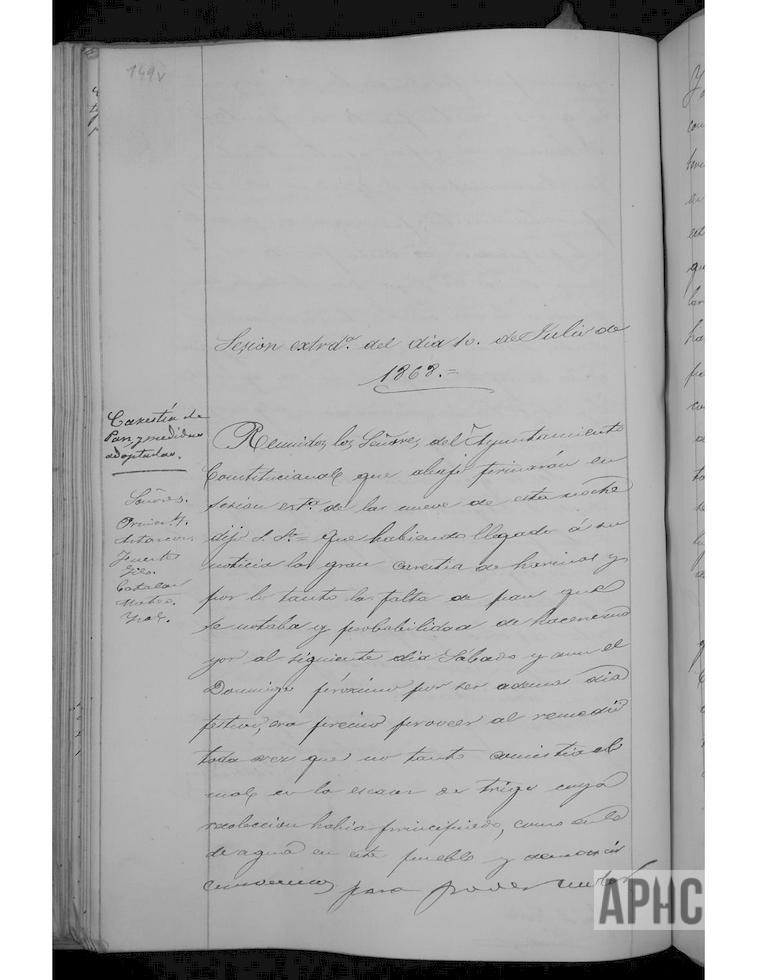 149v
Sesion extrdª. del dia 10. de Julio de
1868.=
Carestía de
Pan, y medidas
adoptadas.
Señores.
Fuerte
Gil.
Catalan
Mateo.
Reunidos los Señores del Ayuntamiento
Constitucional que abajo firmarán en
sesion estª. de las nueve de esta noche
dijo S. Sª.= Que habiendo llegado á su
noticia la gran carestia de harinas y
por lo tanto la falta de pan que
se notaba y probabilidad de hacerse ma
yor al siguiente dia Sábado y aun el
Domingo próximo por ser ademas dia
festivo, era preciso proveer al remedio
toda vez que no tanto consistia el
mal en la escasez de trigo cuya
recoleccion habia principiado, como en la
de agua en este pueblo y demas cir
para poder
APHC